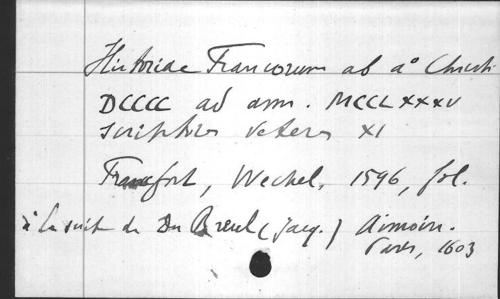 Historiae Francorum ab a° Christi
DCCCC ad ann. MCCLXXXV
scriptores veteres XI
Francfort, Wechel, 1596, fol.
à la suite de Du Breul (Jacq.) Aimoin.
Paris, 1603